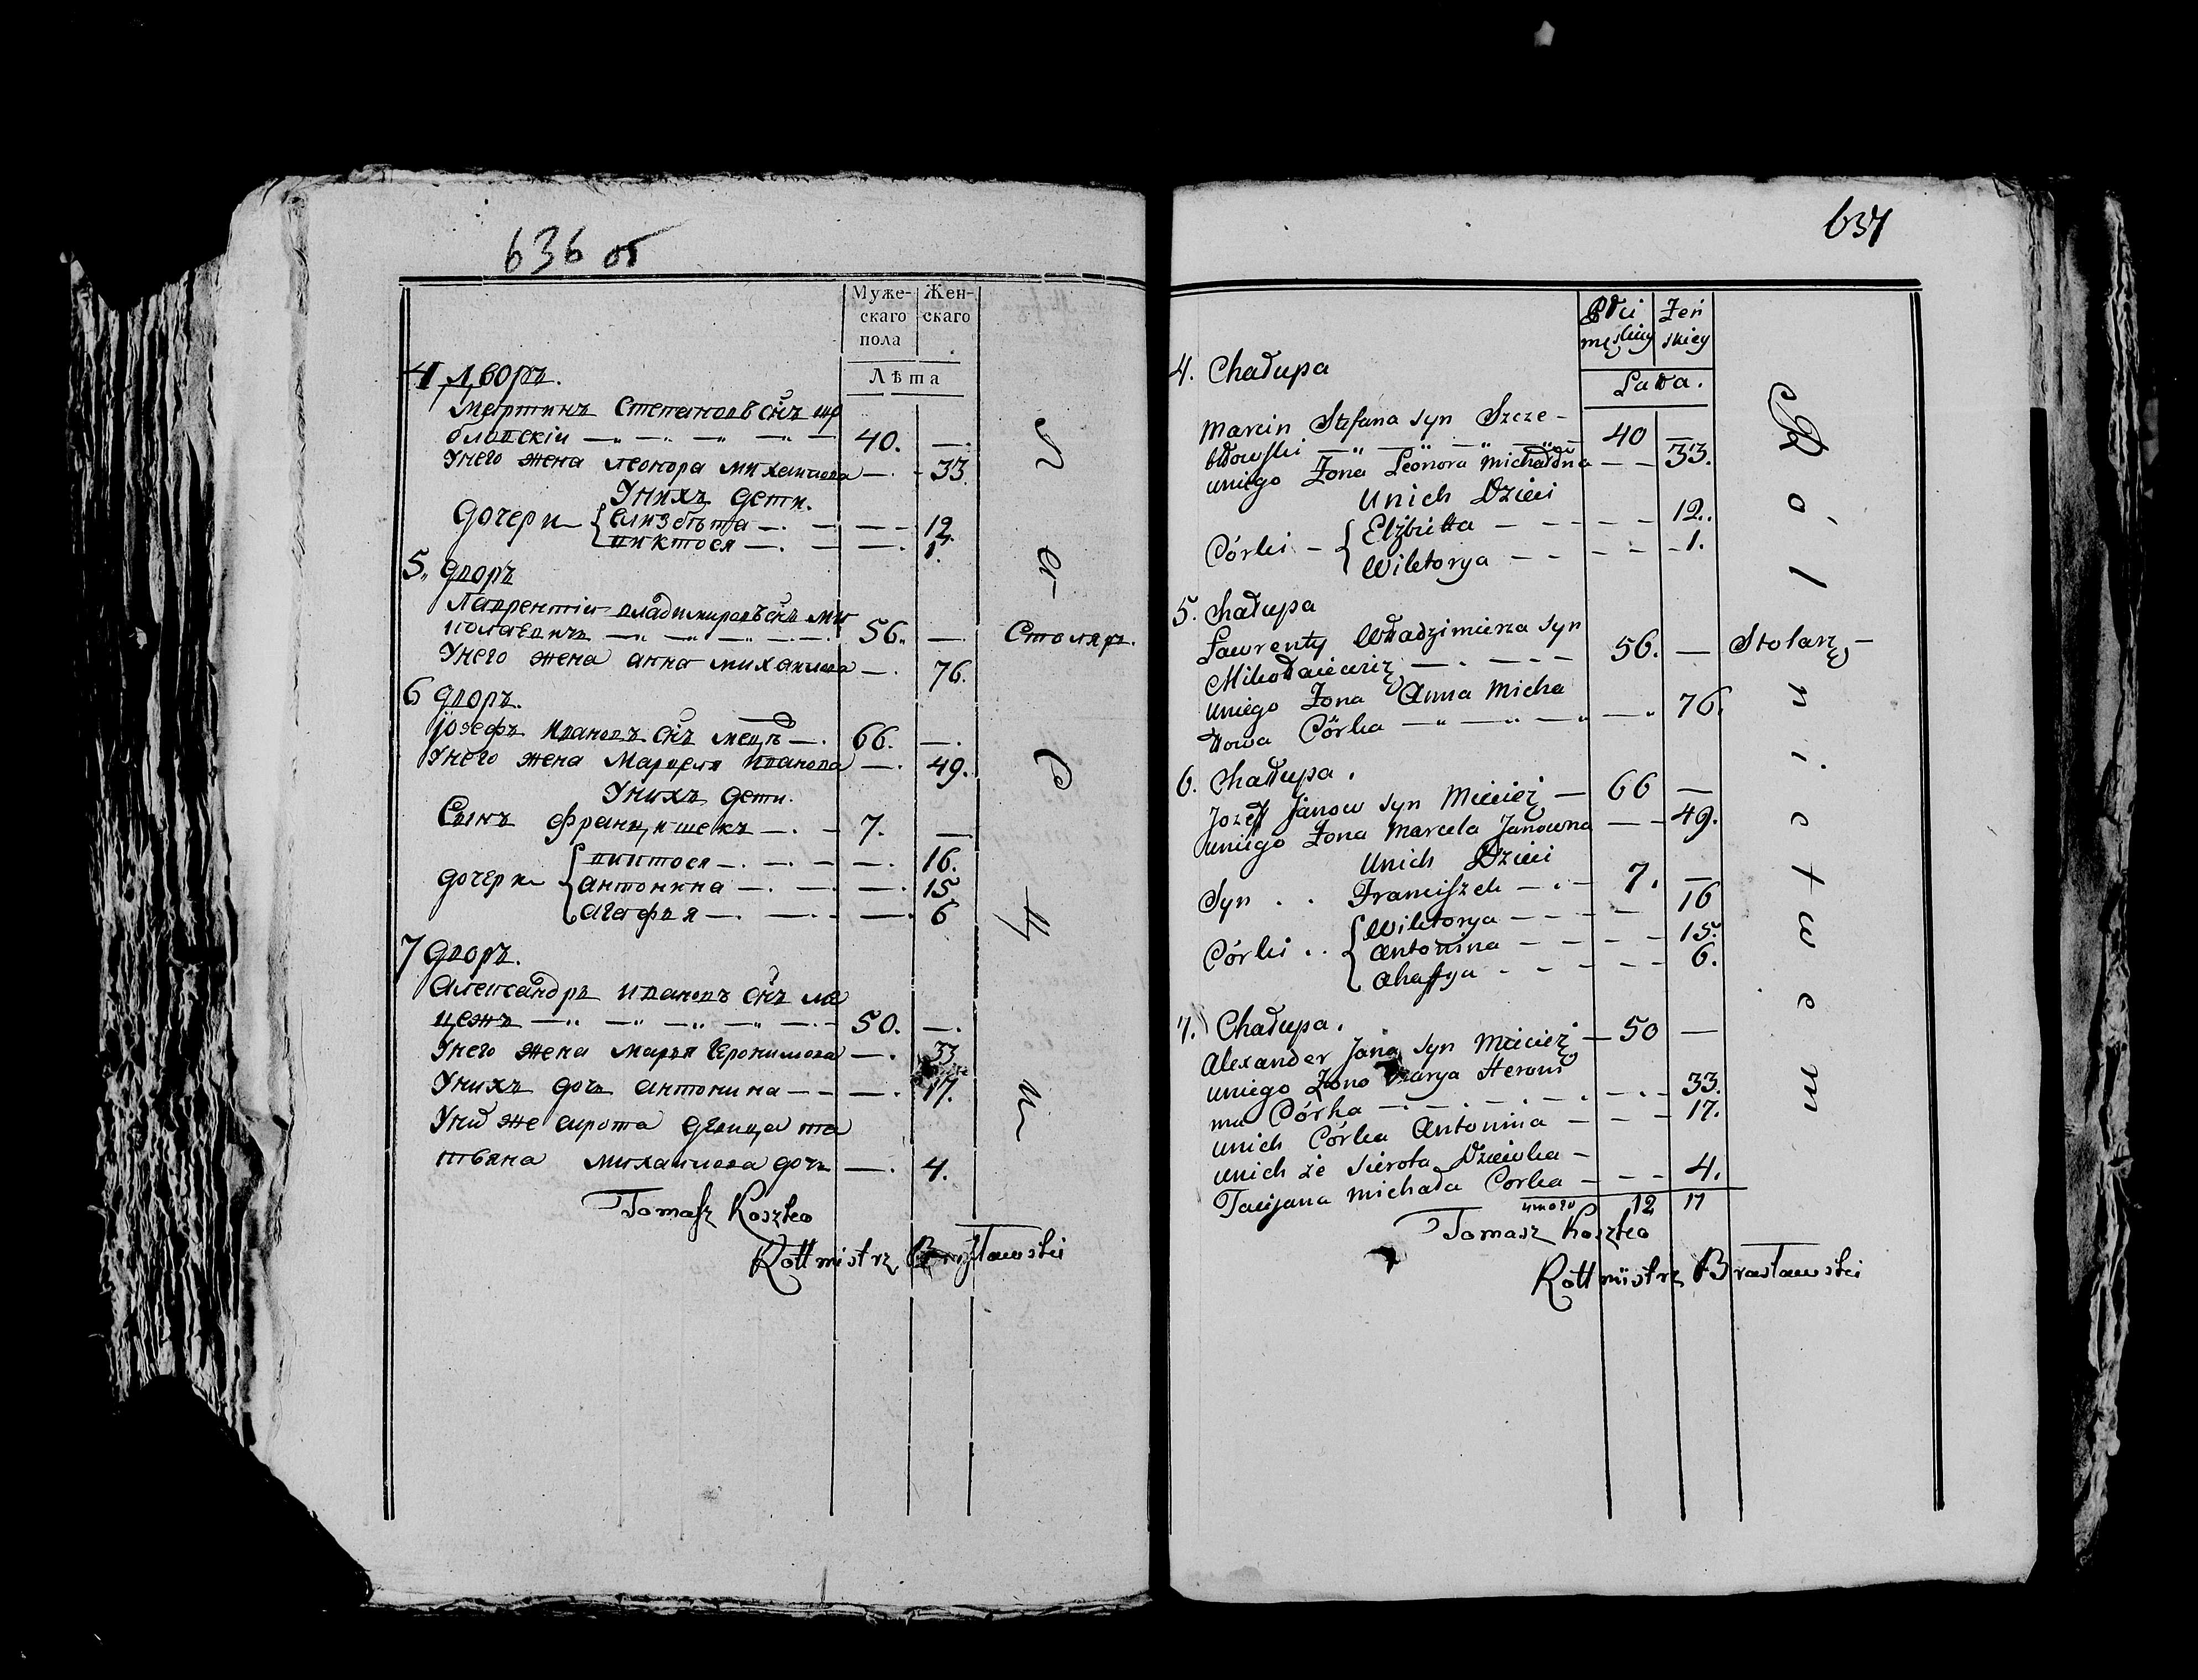 636 об
Муже- Жен-
скаго скаго
пола
Лѣта
4 дворъ.
Мартинъ Степановъ снъ ще
бловскіи 40. —
Унего жена леонора михаилова — 33
Унихъ дети.
дочери { елизбѣта — 12.
виктося — 1.
5. дворъ
Лаврентіи владимировъ снъ ми
колаевичъ 56. — Столяръ.
Унего жена анна михаилова — 76.
6 дворъ.
Іозефъ Ивановъ снъ мецъ 66. —
Унего жена Марцеля иванова — 49.
Унихъ дети.
Сынъ францишекъ 7. —
дочери { виктося — 16.
антонина — 15
агафья — 6
7 дворъ.
Александръ ивановъ снъ ма
цежъ 50. —
Унего жена марья Геронимова — 33
Унихъ дочь антонина — 17.
Уних же сирота девица та
тьяна михаилова дочь — 4.
Tomasz Koszko
Rottmistrz Brasławski
637
Płci Żeń
męskiey skiey
Lata.
4. Chałupa
Marcin Stefana syn Szcze-
błowski 40 —
uniego Żona Leonora Michałowna — 33.
unich Dzieci
Córki { Elżbieta — 12.
Wiktorya — 1.
5. Chałupa
Lawrenty Władzimierza syn
Mikołaiewicz 56. — Stolarz
uniego Żona Anna Micha
łowa Córka — 76.
6. Chałupa.
Jozeff Janow syn Miecież 66 —
uniego Żona Marcela Janowna — 49.
unich Dzieci
Syn Franciszek 7. —
Córki { Wiktorya — 16
Antonina — 15.
Ahaffya — 6.
7. Chałupa.
Alexander Jana syn Macież 50 —
uniego Żona Marya Heroni
ma Córka — 33.
unich Córka Antonina — 17.
unich że sierota Dziewka
Tacijana Michała Corka — 4.
итого 12 17
Tomasz Koszko
Rottmistrz Brasławski
Rólnictwem